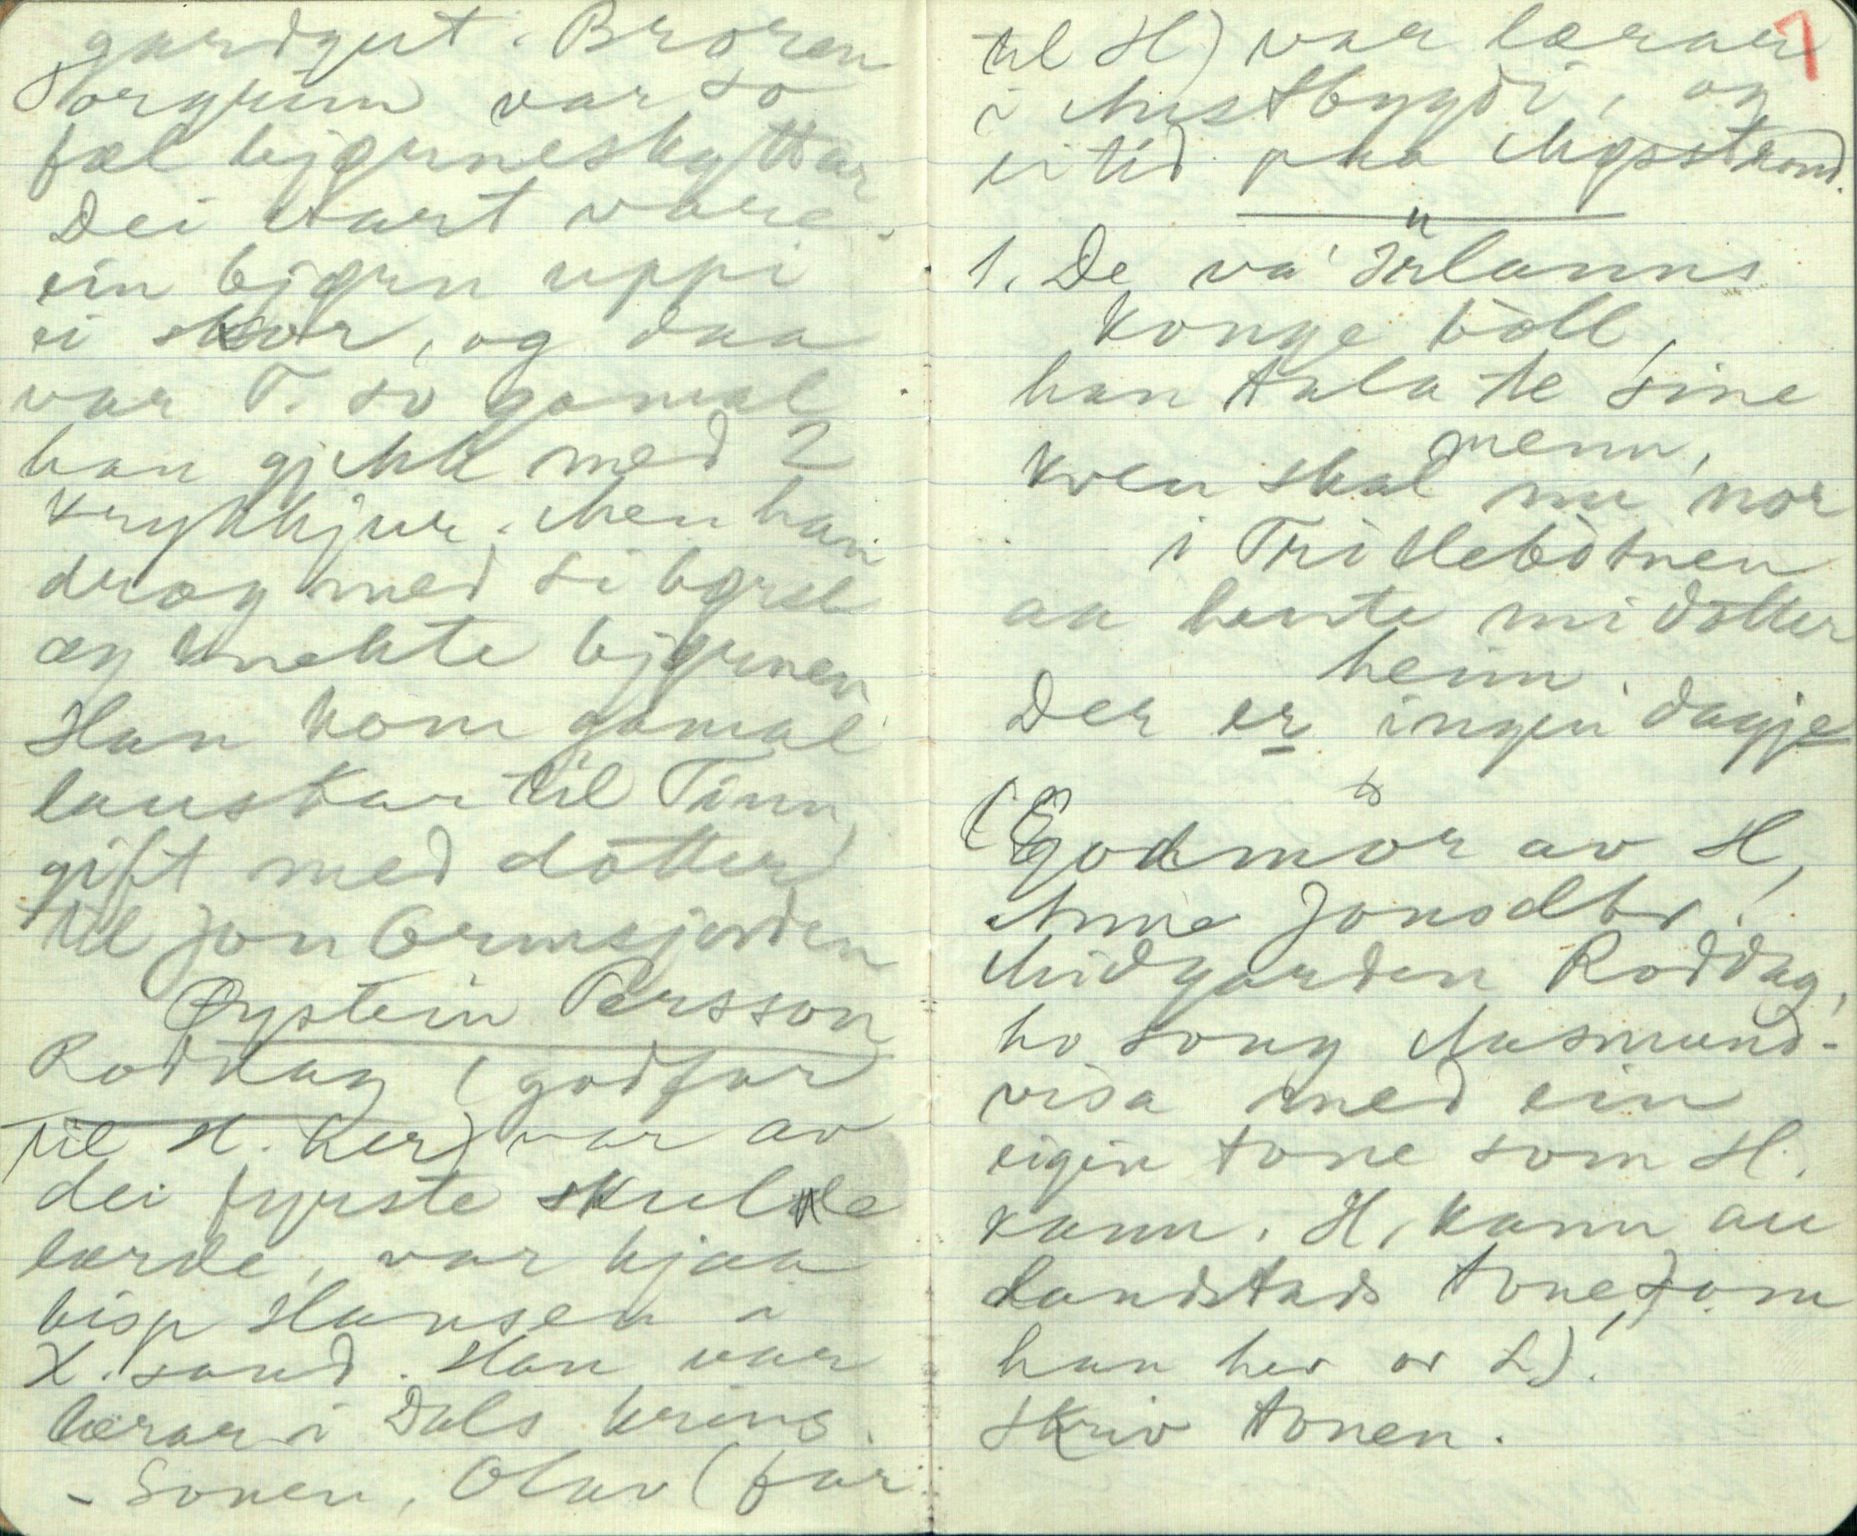 gardgut. Broren
Torgrim var so
fæl bjørneskyttar
Dei vart vare
ein bjørn uppi
ei skor, og daa
var T. so gamal
han gjekk med 2
krykkjur. Men han
drog med si børse
og knekte bjørnen
Han kom gamal
lauskar til Tinn,
gift med dotter
til Jon Ormsjorden
Øystein Persson
Roddag (godfar
til H. her) var av
dei fyrste skule
lærde, var hjaa
bisp Hansen i
X.sand. Han var
lærar i Dals krins.
- Sonen, Olav (far
7
til H) var lærar
i Austbygdi, og
ei tid paa Møsstrond.
1. De va' Irlanns
konge bóll,
han tala te sine
menn,
kven skal nu nor
i Tritlebòtnen
aa hente mi dòtter
heim.
Der er ingen dagje
(Godmor av H,
Anne Jonsdtr.
Midgarden Roddag,
ho song Aasmund-
visa med ein
eigen tone som H.
kann. H. kann au
Landstads tone, som
han her or L).
Skriv tonen.